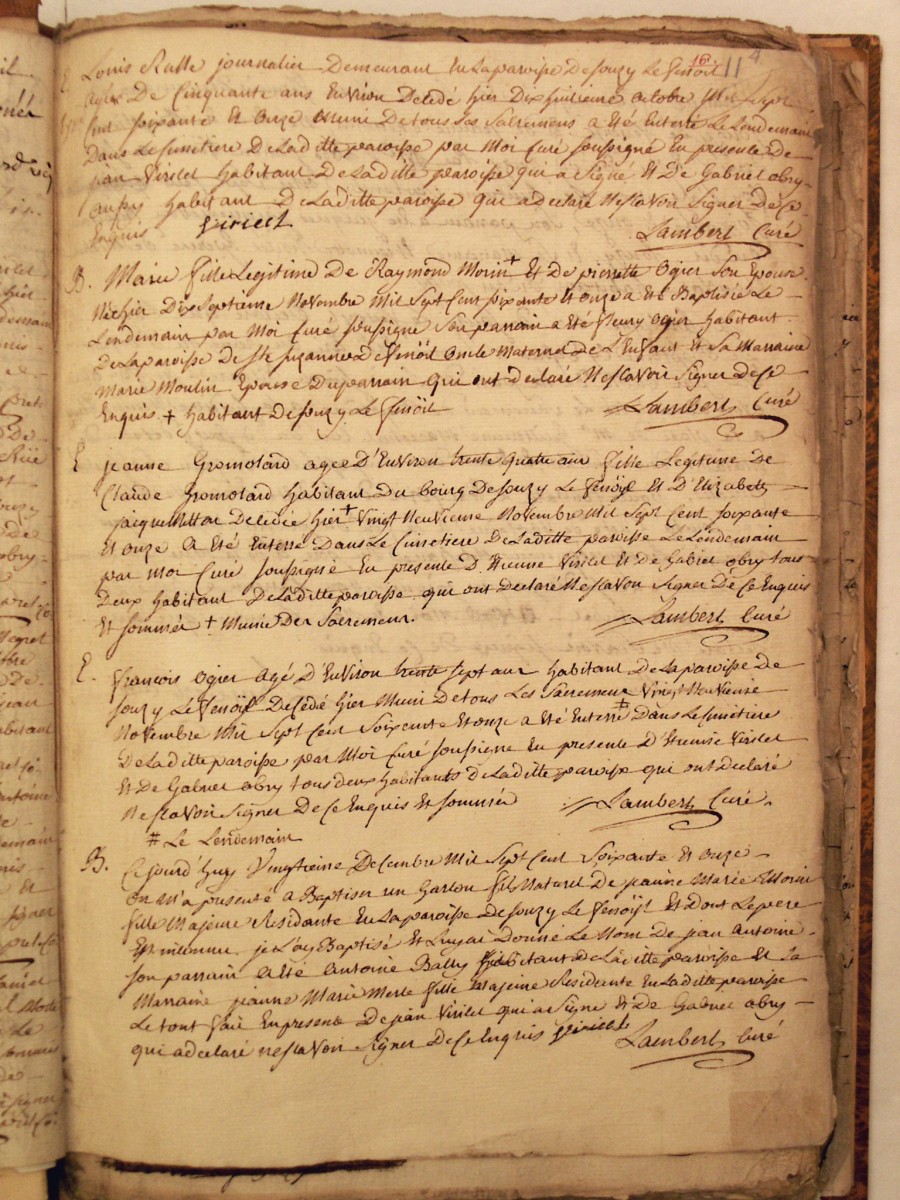 16 11 4
E Louis Ralle journalier Demeurant En La paroisse De Souzy Le fenöil
agée De Cinquante ans Environ Decedé hier Dix huitieme octobre Mil Sept
Cent soixante Et Onze Muni De tous Les Sacremens a Eté Enterré Le Lendemain
Dans Le Cimetiere De Laditte paroisse par Moi Curé soussigné En presence de
jean Virilet habitant De Laditte paroisse qui a Signé Et De Gabriel obry
aussy habitant De Laditte paroisse qui a declaré Ne sçavoir Signer De Ce
Enquis Viricel Lambert Curé
B. Marie fille Legitime De Raymond Morin + Et De pierrette Ogier Son Epouse
Née hier Dix Septieme Novembre Mil Sept Cent soixante Et onze a Eté Baptisée Le
Lendemain par Moi Curé soussigné Son parrain a Eté fleury Ogier habitant
De La paroisse de Ste Suzanne de fenöil Oncle Maternel De L'Enfant Et Sa Marraine
Marie Moulin Epouse Du parrain qui ont declaré Ne sçavoir Signer De Ce
Enquis + habitant De Souzy Le fenöil Lambert Curé
E jeanne Gromolard agee D'Environ trente quatre ans fille Legitime De
Claude Gromolard habitant Du bourg De Souzy Le fenöyl Et D'Elizabeth
Decedée hier + Vingt Neuvieme Novembre Mil Sept Cent soixante
Et onze a Eté Enterré Dans Le Cimetiere De Laditte paroisse Le Lendemain
par Moi Curé soussigné En presence D'Etienne Virilet Et de Gabriel obry tous
Deux habitant De Laditte paroisse qui ont Declaré Ne sçavoir Signer De Ce Enquis
Et sommés + Munie Des Sacremens. Lambert Curé
E. françois Ogier agé D'Environ trente sept ans habitant De La paroisse de
Souzy Le fenöyl Decedé hier Muni De tous Les Sacremens Vingt Neuvieme
Novembre Mil Sept Cent Soixante Et onze a Eté Enterré # Dans Le Cimetiere
De Laditte paroisse par Moi Curé soussigné En presence D'Etienne Virilet
Et De Gabriel obry tous deux habitants De Laditte paroisse qui ont Declaré
Ne sçavoir Signer De Ce Enquis Et sommés Lambert Curé.
# Le Lendemain
B. Ce jourd'huy Vingtieme Decembre Mil Sept Cent Soixante Et onze
On M'a presenté a Baptiser un Garson fils Naturel De jeanne Marie
fille Majeure Residante En La paroisse De Souzy Le fenöyl Et Dont Le pere
Est inconnu je L'ay Baptisé Et Luy ai Donné Le Nom De jean Antoine
Son parrain a Eté Antoine Bally habitant De Laditte paroisse Et Sa
Marraine jeanne Marie Merle fille Majeure Residente En Laditte paroisse
Le tout fait En presence De jean Virilet qui a Signé Et De Gabriel obry
qui a declaré ne sçavoir Signer De Ce Enquis Viricel Lambert Curé